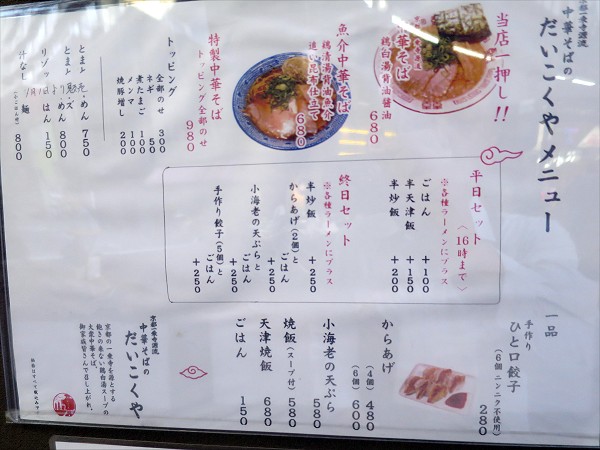 京都一乗寺源流
中華そばの
だいこくや メニュー
当店一押し!!
中華そば
鶏白湯背油醤油
680
魚介中華そば
680
特製中華そば
トッピング全部のせ
980
トッピング
全部のせ 300
ネギ 50
煮たまご 100
メンマ 100
焼豚増し 200
750
800
リゾット
150
汁なし
麺
800
平日セット
〈16時まで〉
※各種ラーメンにプラス
ごはん +100
半天津飯 +150
半炒飯 +200
終日セット
※各種ラーメンにプラス
半炒飯 +250
からあげ(2個)と
ごはん +250
小海老の天ぷらと
ごはん +250
手作り餃子(5個)と
ごはん +250
一品
手作り
ひと口餃子
(6個 ニンニク不使用)
280
からあげ
(4個) 480
(6個) 600
小海老の天ぷら
580
焼飯(スープ付)
580
天津焼飯 680
ごはん 150
京都一乗寺源流
中華そばの
だいこくや
京都の一乗寺を源とする
飽きの来ない鶏白湯スープの
大衆中華そば。
御家庭皆さんで召し上がれ。